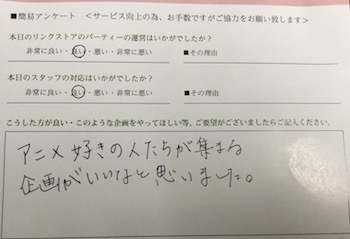 ■簡易アンケート ＜サービス向上の為、お手数ですがご協力をお願い致します＞
本日のリンクストアのパーティーの運営はいかがでしたか？
非常に良い・良い・悪い・非常に悪い ■その理由
本日のスタッフの対応はいかがでしたか？
非常に良い・良い・悪い・非常に悪い ■その理由
こうした方が良い・このような企画をやってほしい等、ご要望がございましたらご記入ください。
アニメ好きの人たちが集まる
企画がいいなと思いました。